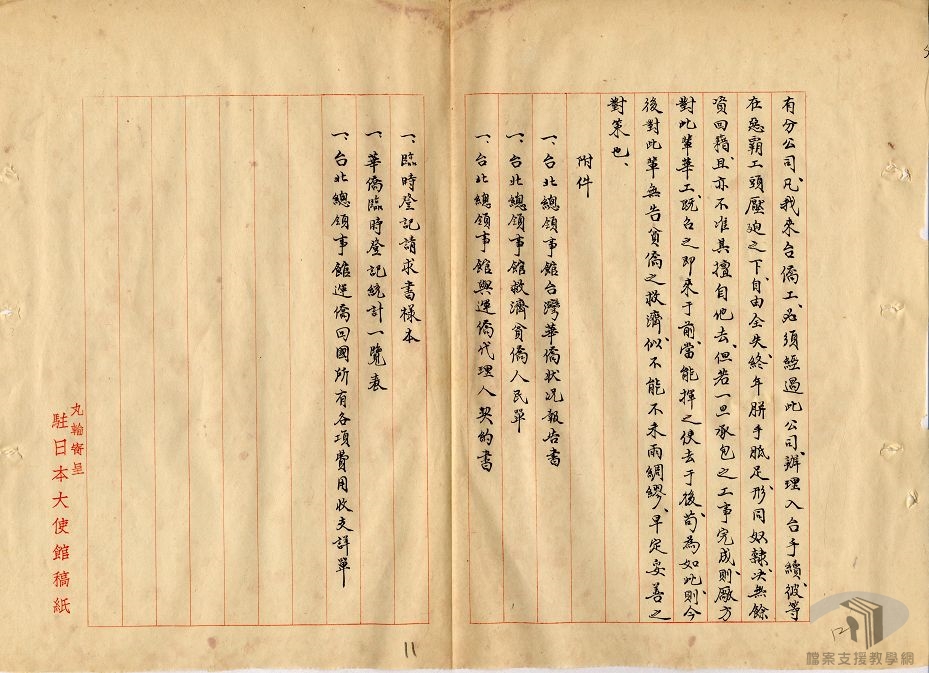 有分公司、凡我來台僑工、必須經過此公司、辦理入台手續、彼等
在惡霸工頭壓迫之下、自由全失、終年胼手胝足、形同奴隸、決無餘
資回籍、且亦不准其擅自他去、但若一旦承包之工事完成、則廠方
對此輩華工、既召之即來于前、當能揮之使去于後、苟為如此、則今
後對此輩無告貧僑之救濟、似不能不未雨綢繆、早定妥善之
對策也、
附件
一、台北總領事館台灣華僑狀況報告書
一、台北總領事館救濟貧僑人民單
一、台北總領事館與運僑代理人契約書
一、臨時登記請求書樣本
一、華僑臨時登記統計一覽表
一、台北總領事館運僑回國所有各項費用收支詳單
駐日本大使館稿紙
11
12
檔案支援教學網